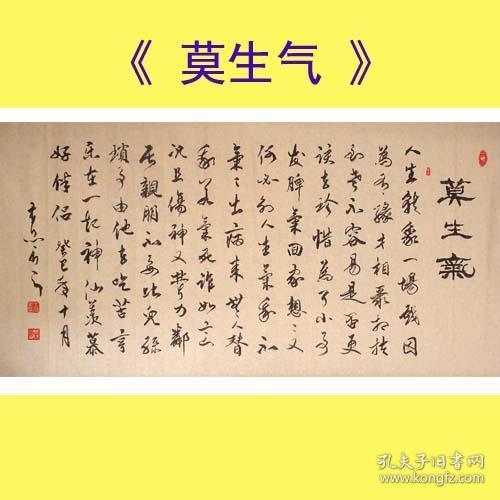 《 莫生气 》
莫生氣
人生就象一場戲因
為有緣才相聚相扶
到老不容易是否更
該去珍惜為了小事
发脾氣回想又
何必别人生氣我不
氣氣出病來無人替
我若氣死谁如意
况且傷神又费力鄰
居親朋不要比兒孫
瑣事由他去吃苦享
樂在一起神仙羡慕
好伴侣 癸巳年十月
孔夫子旧书网
www.kongfz.com